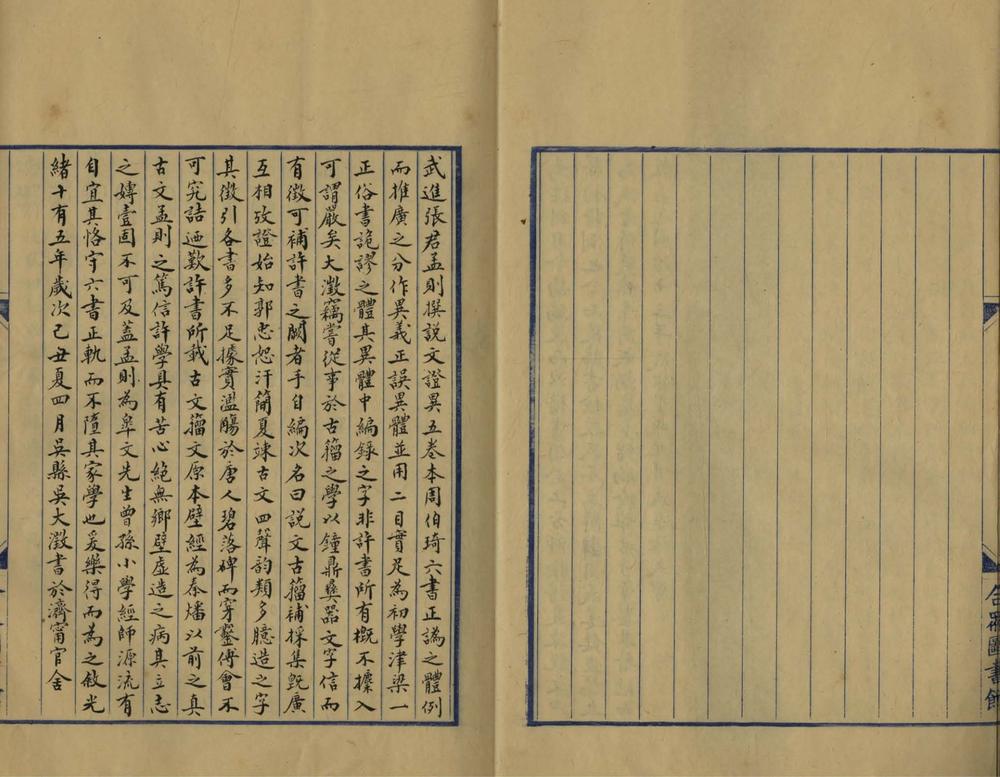 武進張君孟則撰說文證異五卷本周伯琦六書正譌之體例
而推廣之分作異義正誤異體並用二目實足為初學津梁一
正俗書詭謬之體其異體中編錄之字非許書所有概不攗入
可謂嚴矣大澂竊嘗從事於古籀之學以鐘鼎彝器文字信而
有徵可補許書之闕者手自編次名曰說文古籀補採集既廣
互相攷證始知郭忠恕汗簡夏竦古文四聲韵類多臆造之字
其徵引各書多不足據實濫觴於唐人碧落碑而穿鑿傅會不
可究詰迺歎許書所載古文籀文原本壁經為秦燔以前之真
古文孟則之篤信許學具有苦心絕無鄉壁虛造之病其立志
之嫥壹固不可及蓋孟則為皋文先生曾孫小學經師源流有
自宜其恪守六書正軌而不墮其家學也爰樂得而為之敘光
緒十有五年歲次己丑夏四月吳縣吳大澂書於濟甯官舍
合眾圖書館